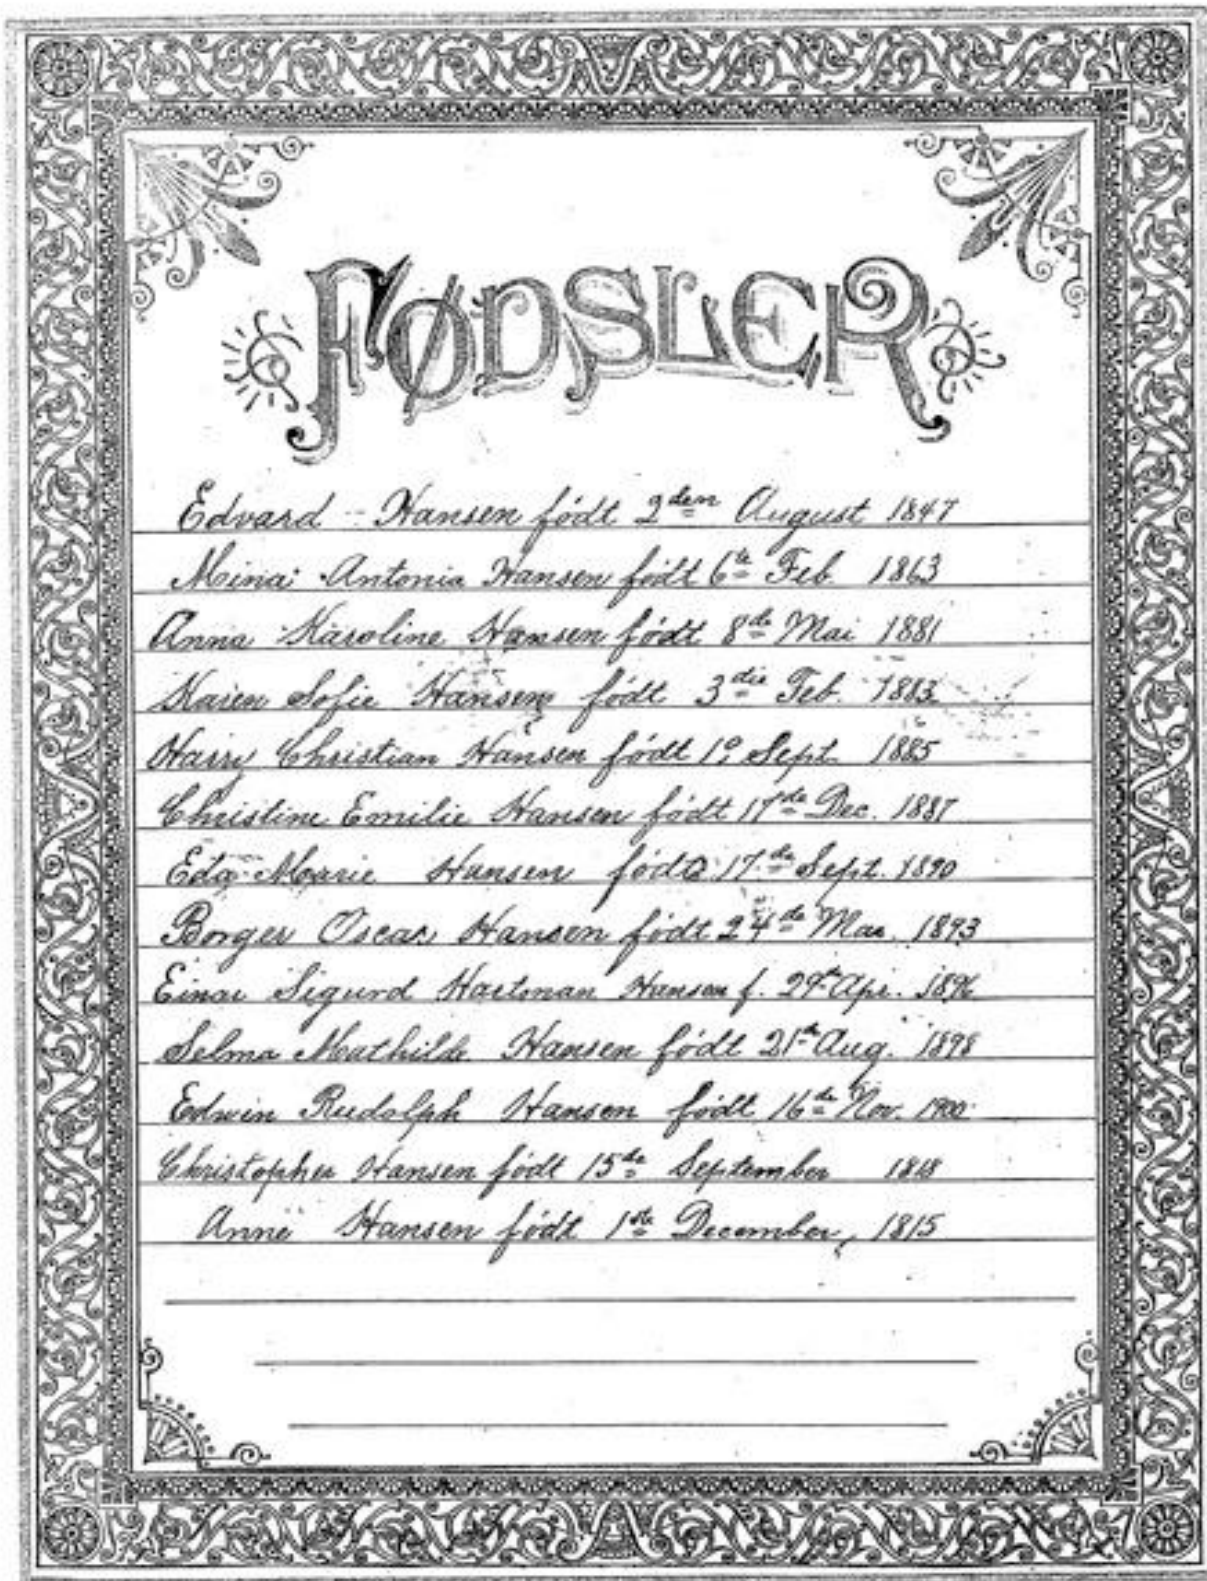 FØDSLER
Edvard - Hansen født 2den August 1847
Mina Antonia Hansen født 6te Feb. 1863
Anna Karoline Hansen født 8de Mai 1881
Karen Sofie Hansen født 3die Feb. 1883
Harry Christian Hansen født Sept. 1885
Christine Emilie Hansen født 17de Dec. 1887
Eda Marie Hansen født 17de Sept. 1890
Borger Oscar Hansen født 24de Mar. 1893
Einar Sigurd Hartman Hansen f. Apr. 1896
Selma Mathilde Hansen født 21de Aug. 1898
Edwin Rudolph Hansen født 16de Nov. 1900
Christopher Hansen født 15de September 1818
Anne Hansen født 1ste December, 1815